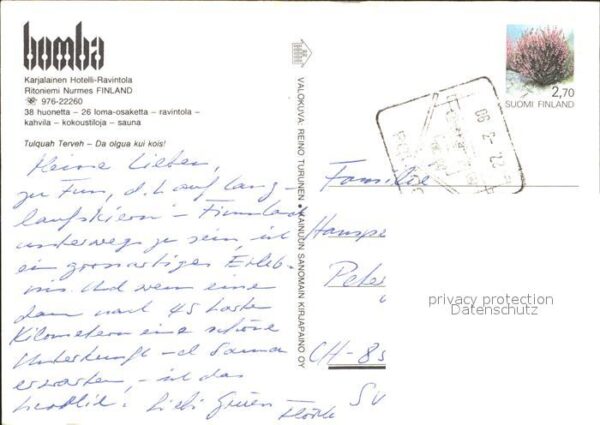 bomba
Karjalainen Hotelli-Ravintola
Ritoniemi Nurmes FINLAND
☏ 976-22260
38 huonetta – 26 loma-osaketta – ravintola –
kahvila – kokoustiloja – sauna
Tulquah Terveh – Da olgua kui kois!
Meine Lieben,
zu Fuss, d.h. auf Lang-
laufskiern – Finnland
unterwegs zu sein, ist
ein grossartiges Erleb-
nis. Und wenn eine
dann nach 45 harten
Kilometern eine schöne
Unterkunft – Sauna
erwarten, – ist das
herrlich. Liebi Grüess –
VALOKUVA: REINO TURUNEN • KAINUUN SANOMAIN KIRJAPAINO OY
2,70
SUOMI FINLAND
Familie
Hanspe
Peter
CH-8
privacy protection
Datenschutz